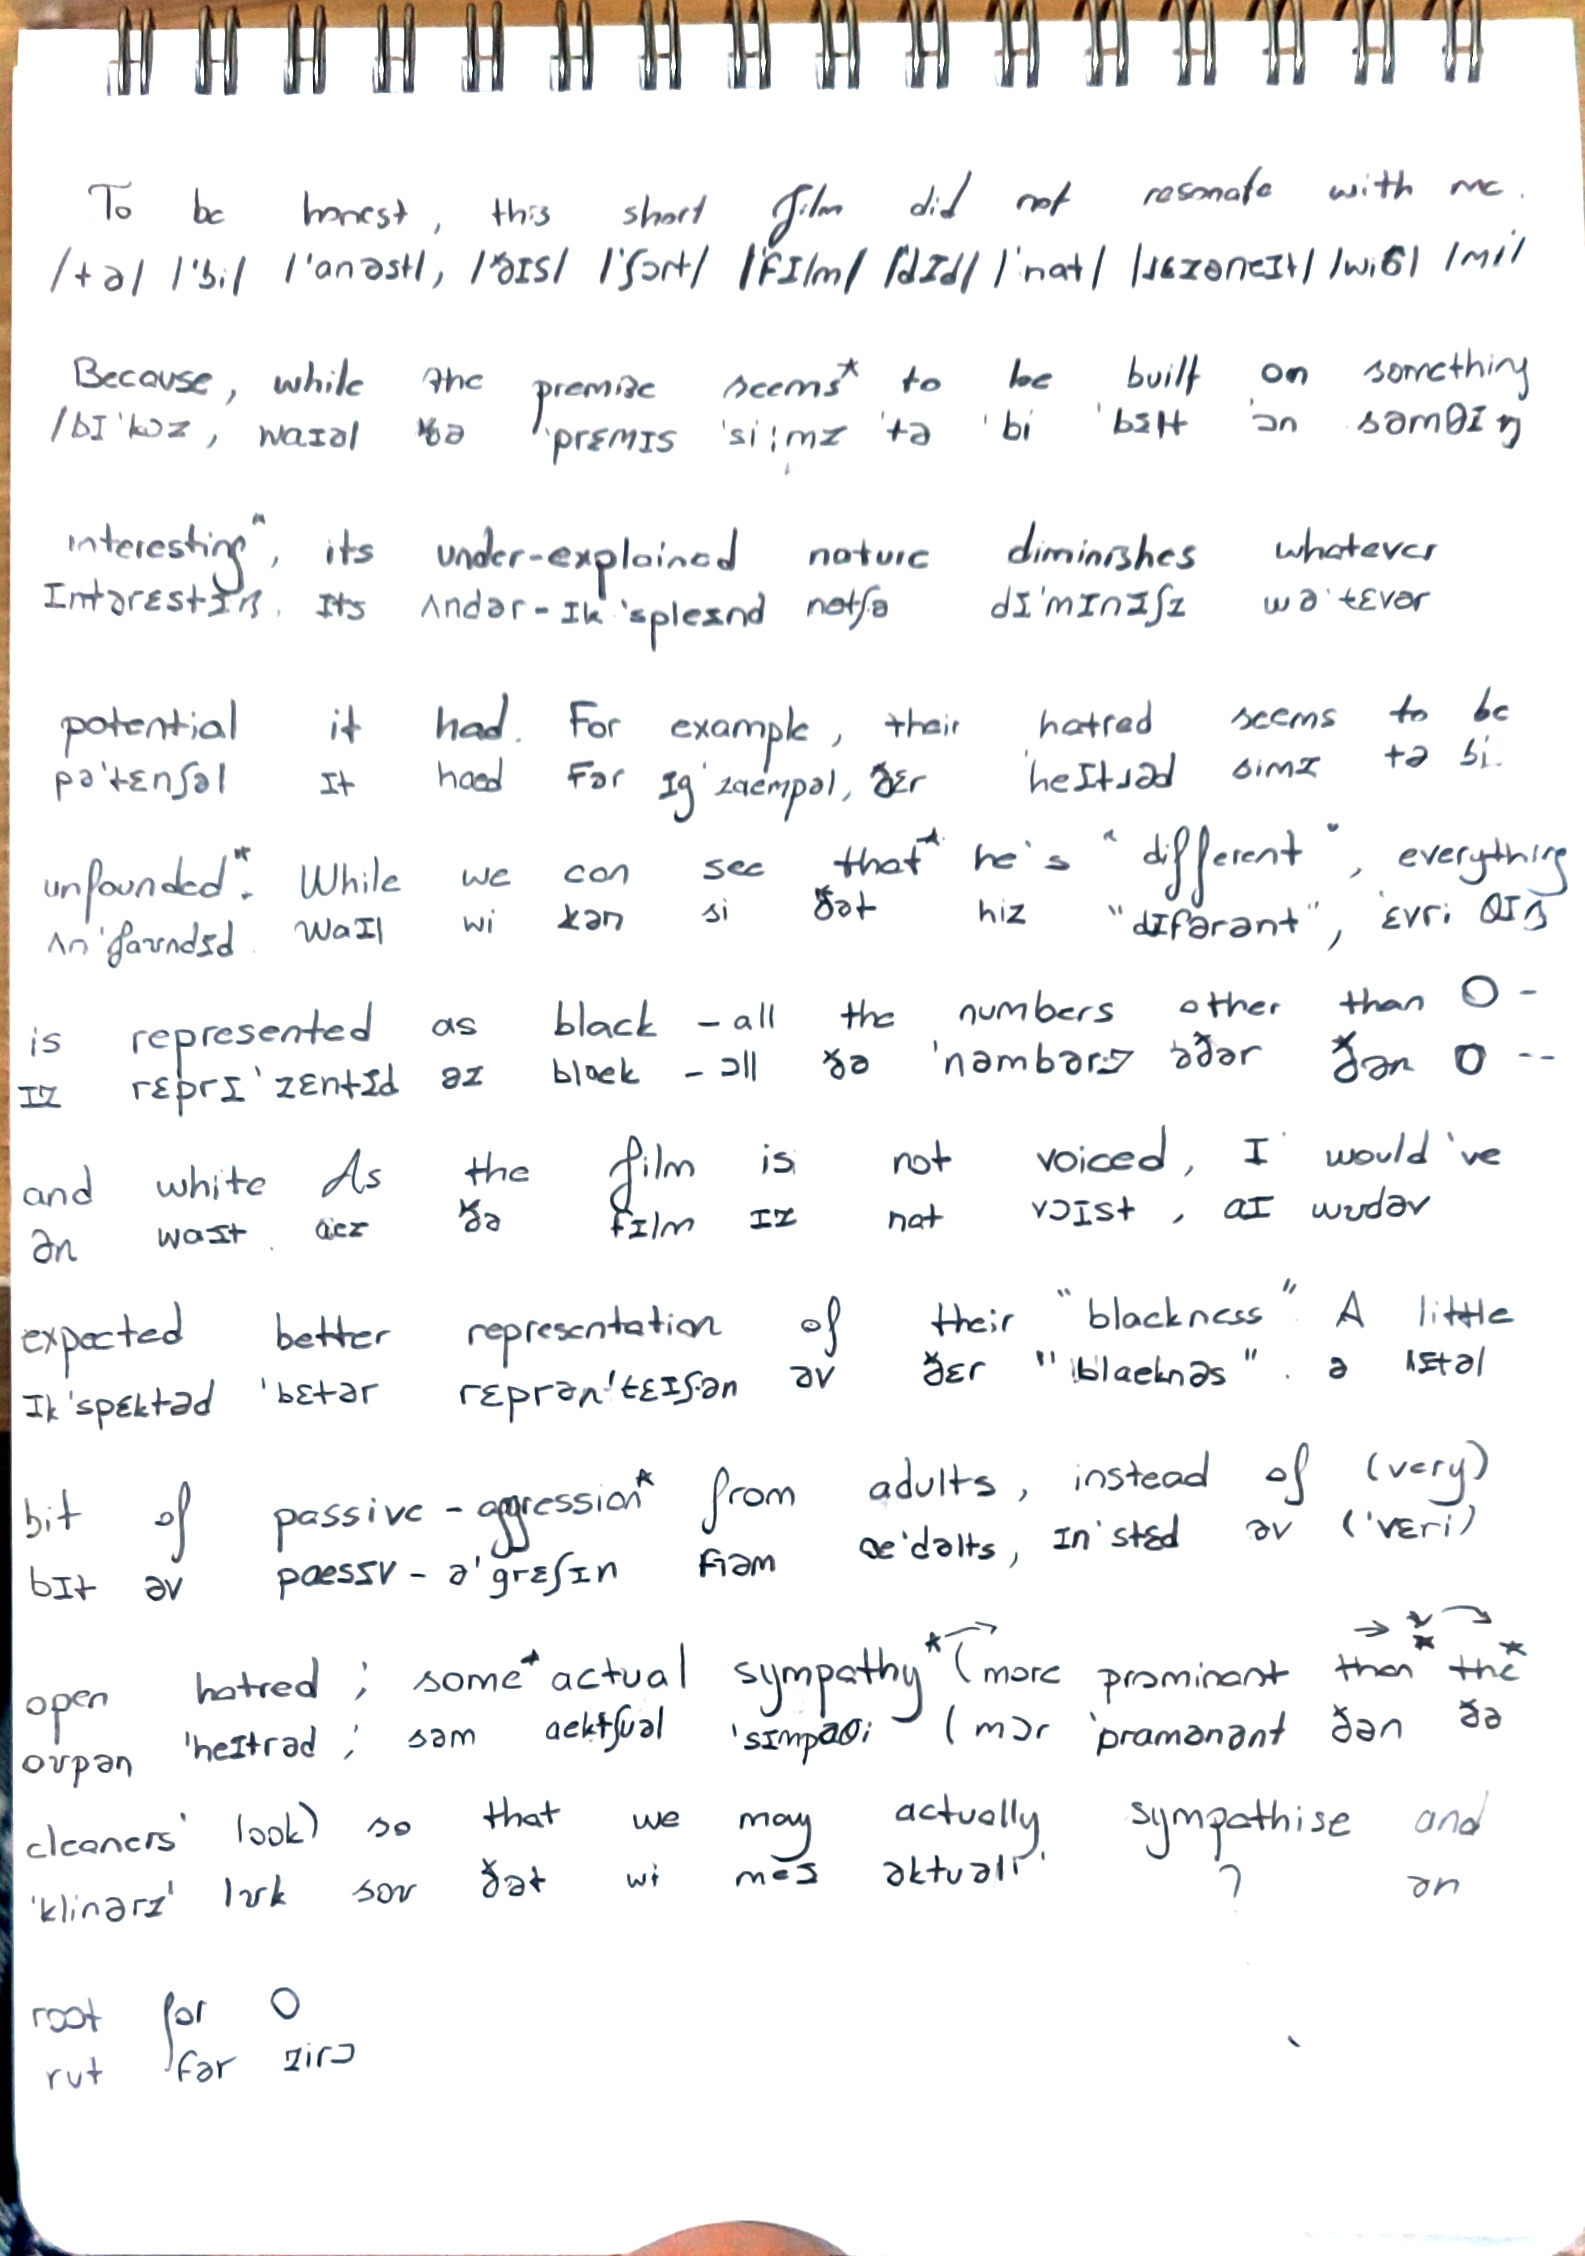 To be honest, this short film did not resonate with me.
/tə/ /'bi/ /'anəst/, /'ðɪs/ /'ʃɔrt/ /'fɪlm/ /'dɪd/ /'nat/ /ɹɛzəneɪt/ /wið/ /mi/
Because, while the premise seems* to be built on something
/bɪ'kɔz, waɪəl ðə 'prɛmɪs 'si:mz 'tə 'bi 'bɪlt 'ɔn səmθɪŋ
interesting*, its under-explained nature diminishes whatever
ɪntərɛstɪŋ, ɪts ʌndər-ɪk'spleɪnd netʃə dɪ'mɪnɪʃz wə'tɛvər
potential it had. For example, their hatred seems to be
pə'tɛnʃəl ɪt haed fər ɪg'zaempəl, ðɛr 'heɪtɹəd simz tə bi.
unfounded*. While we can see that* he's "different", everything
ʌn'faʊndɪd. waɪl wi kən si ðət hiz "dɪfərənt", 'ɛvri θɪŋ
is represented as black - all the numbers other than 0 -
ɪz rɛprɪ'zɛntɪd əz blaek - ɔll ðə 'nəmbərz əðər ðən 0 --
and white As the film is not voiced, I would've
ən waɪt. aez ðə fɪlm ɪz nat vɔɪst, aɪ wʊdəv
expected better representation of their "blackness". A little
ɪk'spɛktəd 'bɛtər rɛprən'tɛɪʃən əv ðɛr "blaeknəs". ə lɪtəl
bit of passive-aggression* from adults, instead of (very)
bɪt əv paesɪv - ə'grɛʃɪn fɹəm ae'dəlts, ɪn'stɛd əv ('vɛri)
open hatred; some* actual sympathy* (more prominent than* the*
oʊpən 'heɪtrəd; səm aektʃʊəl 'sɪmpaθi (mɔr 'pramənənt ðən ðə
cleaners' look) so that we may actually sympathise and
'klinərz' lʊk soʊ ðət wi meɪ əktʊəlɪ ? ən
root for 0
rut fər zirɔ